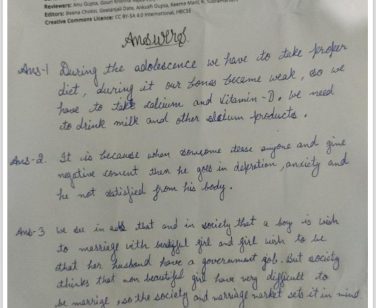 Reviewers: Anu Gupta, Gouri Krishna
Editors: Beena Choksi, Geetanjali Date, Ankush Gupta, Reema Mani, K. Subramaniam
Creative Commons Licence: CC BY-SA 4.0 International, HBCSE
Answers
Ans-1 During the adolescence we have to take proper
diet, during it our bones became weak, so we
have to take calcium and vitamin-D. We need
to drink milk and other products.
Ans-2. It is because when someone tease anyone and give
negative coment then he goes in , anxiety and
he not satisfied from his body.
Ans-3 We see in that and in society that a boy is wish
to marriage with girl and girl wish to be
that her husband have a government job. But society
thinks that non beautiful girl have very difficult to
be marriage, so the society and marriage market sets it in mind